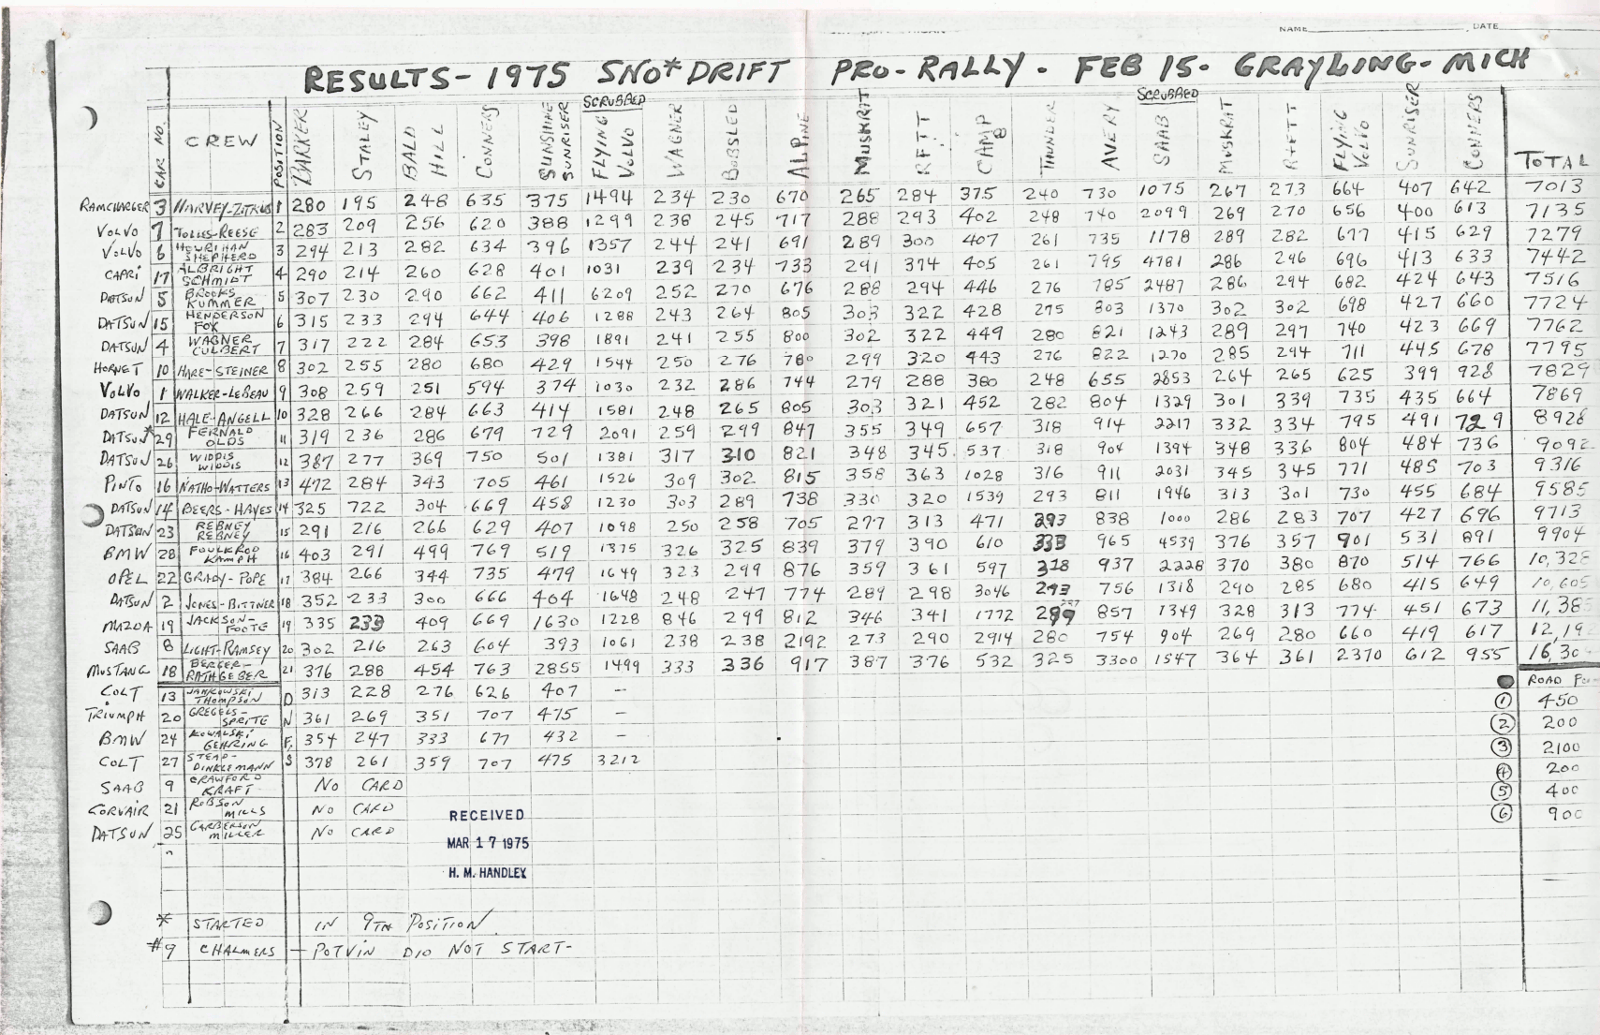 NAME DATE
RESULTS- 1975 SNO*DRIFT PRO-RALLY. FEB 15- GRAYLING- MICH
CAR NO. CREW POSITION BARKER STALEY BALD HILL CONNERS SUNSHINE SUNRISER SCRUBBED FLYING VOLVO WAGNER BOBSLED ALPINE MUSKRAT RFTT CAMP 8 THUNDER AVERY SCRUBBED SAAB MUSKRAT FLYING VOLVO SUNRISER CONNERS TOTAL
RAMCHARGER 3 HARVEY-ZITKUS 1 280 195 248 635 375 1494 234 230 670 265 284 375 240 730 1075 267 273 664 407 642 7013
VOLVO 7 TOLLES-REESE 2 283 209 256 620 388 1299 238 245 717 288 293 402 248 740 2099 269 270 656 400 613 7135
VOLVO 6 HOURIHAN SHEPHERD 3 294 213 282 634 396 1357 244 241 691 289 300 407 261 735 1178 289 282 677 415 629 7279
CAPRI 17 ALBRIGHT SCHMIDT 4 290 214 260 628 401 1031 239 234 733 291 374 405 261 795 4781 286 296 696 413 633 7442
DATSUN 5 BROOKS KUMMER 5 307 230 290 662 411 6209 252 270 676 288 294 446 276 785 2487 286 294 682 424 643 7516
DATSUN 15 HENDERSON FOX 6 315 233 294 644 406 1288 243 264 805 303 322 428 275 803 1370 302 302 698 427 660 7724
DATSUN 4 WAGNER CULBERT 7 317 222 284 653 398 1891 241 255 800 302 322 449 280 821 1243 289 297 740 423 669 7762
HORNET 10 HARE-STEINER 8 302 255 280 680 429 1544 250 276 780 299 320 443 276 822 1270 285 294 711 445 678 7795
VOLVO 1 WALKER-LEBEAU 9 308 259 251 594 374 1030 232 286 744 279 288 380 248 655 2853 264 265 625 399 928 7829
DATSUN 12 HALE-ANGELL 10 328 266 284 663 414 1581 248 265 805 303 321 452 282 804 1329 301 339 735 435 664 7869
DATSUN* 29 FERNALD OLDS 11 319 236 286 679 729 2091 259 299 847 355 349 657 318 914 2217 332 334 795 491 729 8928
DATSUN 26 WIDDIS WIDDIS 12 387 277 369 750 501 1381 317 310 821 348 345. 537 318 904 1394 348 336 804 484 736 9092
PINTO 16 NATHO-WATTERS 13 472 284 343 705 461 1526 309 302 815 358 363 1028 316 911 2031 345 345 771 485 703 9316
DATSUN 14 BEERS-HAYES 14 325 722 304 669 458 1230 303 289 738 330 320 1539 293 811 1946 313 301 730 455 684 9585
DATSUN 23 REBNEY REBNEY 15 291 216 266 629 407 1098 250 258 705 277 313 471 293 838 1000 286 283 707 427 696 9713
BMW 28 FOULKROD KAMPH 16 403 291 499 769 519 1375 326 325 839 379 390 610 333 965 4539 376 357 901 531 891 9904
OPEL 22 GRADY-POPE 17 384 266 344 735 479 1649 323 299 876 359 361 597 328 937 2228 370 380 870 514 766 10,328
DATSUN 2 JONES-BITTNER 18 352 233 300 666 404 1648 248 247 774 289 298 3046 293 756 1318 290 285 680 415 649 10,605
MAZDA 19 JACKSON-FOOTE 19 335 233 409 669 1630 1228 846 299 812 346 341 1772 297 857 1349 328 313 774 451 673 11,385
SAAB 8 LIGHT-RAMSEY 20 302 216 263 604 393 1061 238 238 2192 273 290 2914 280 754 904 269 280 660 419 617 12,19
MUSTANG 18 BERKER-RATHGEBER 21 376 288 454 763 2855 1499 333 336 917 387 376 532 325 3300 1547 364 361 2370 612 955 16,30
COLT 13 JANKOWSKI THOMPSON D 313 228 276 626 407 - ROAD
TRIUMPH 20 GREGELS-SPRITE N 361 269 351 707 475 - 1 450
BMW 24 KOWALSKI GEHRING F. 354 247 333 677 432 - 2 200
COLT 27 STEAD-DINKLEMANN S 378 261 359 707 475 3212 3 2100
SAAB 9 CRAWFORD KRAFT NO CARD 4 200
CORVAIR 21 ROBSON MILLS NO CARD 5 400
DATSUN 25 GARBERSON MILLER NO CARD 6 900
RECEIVED
MAR 17 1975
H. M. HANDLEY
* STARTED IN 9TH POSITION.
#9 CHALMERS - POTVIN DID NOT START-